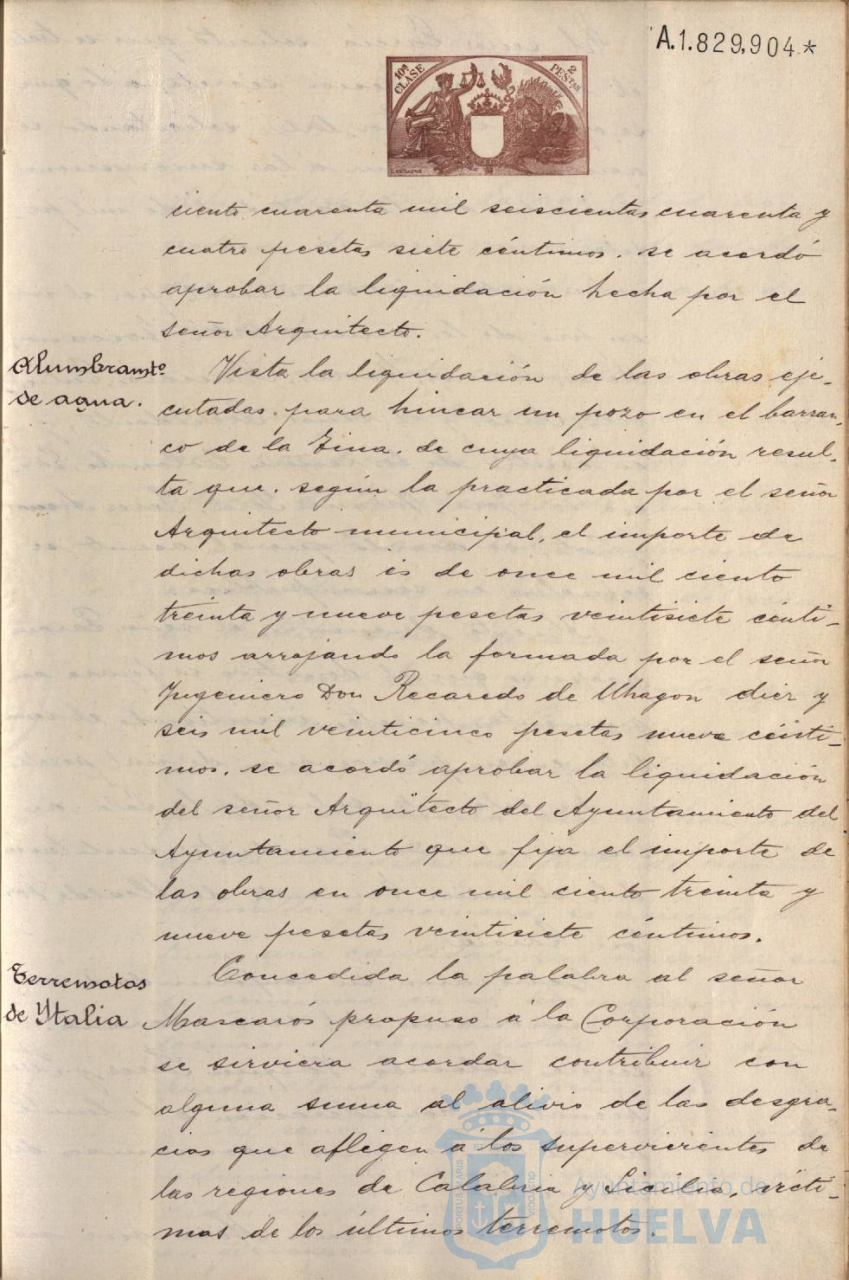 A.1.829,904*
10ª CLASE
2 PESETAS
ciento cuarenta mil seiscientas cuarenta y
cuatro pesetas siete céntimos. se acordó
aprobar la liquidación hecha por el
señor Arquitecto.
Alumbramto
de agua.
Vista la liquidación de las obras eje-
cutadas para hincar un pozo en el barran-
co de la Zina. de cuya liquidación resul-
ta que. según la practicada por el señor
Arquitecto municipal, el importe de
dichas obras es de once mil ciento
treinta y nueve pesetas veintisiete cénti-
mos arrojando la formada por el señor
Ingeniero Don Recaredo de Uhagon diez y
seis mil veinticinco pesetas nueve cénti-
mos. se acordó aprobar la liquidación
del señor Arquitecto del Ayuntamiento del
Ayuntamiento que fija el importe de
las obras en once mil ciento treinta y
nueve pesetas veintisiete céntimos.
Terremotos
de Ytalia
Concedida la palabra al señor
Mascarós propuso á la Corporación
se sirviera acordar contribuir con
alguna suma al alivio de las desgra-
cias que afligen á los supervivientes de
las regiones de Calabria y Sicilia, vícti-
mas de los últimos terremotos.
Ayuntamiento de
HUELVA